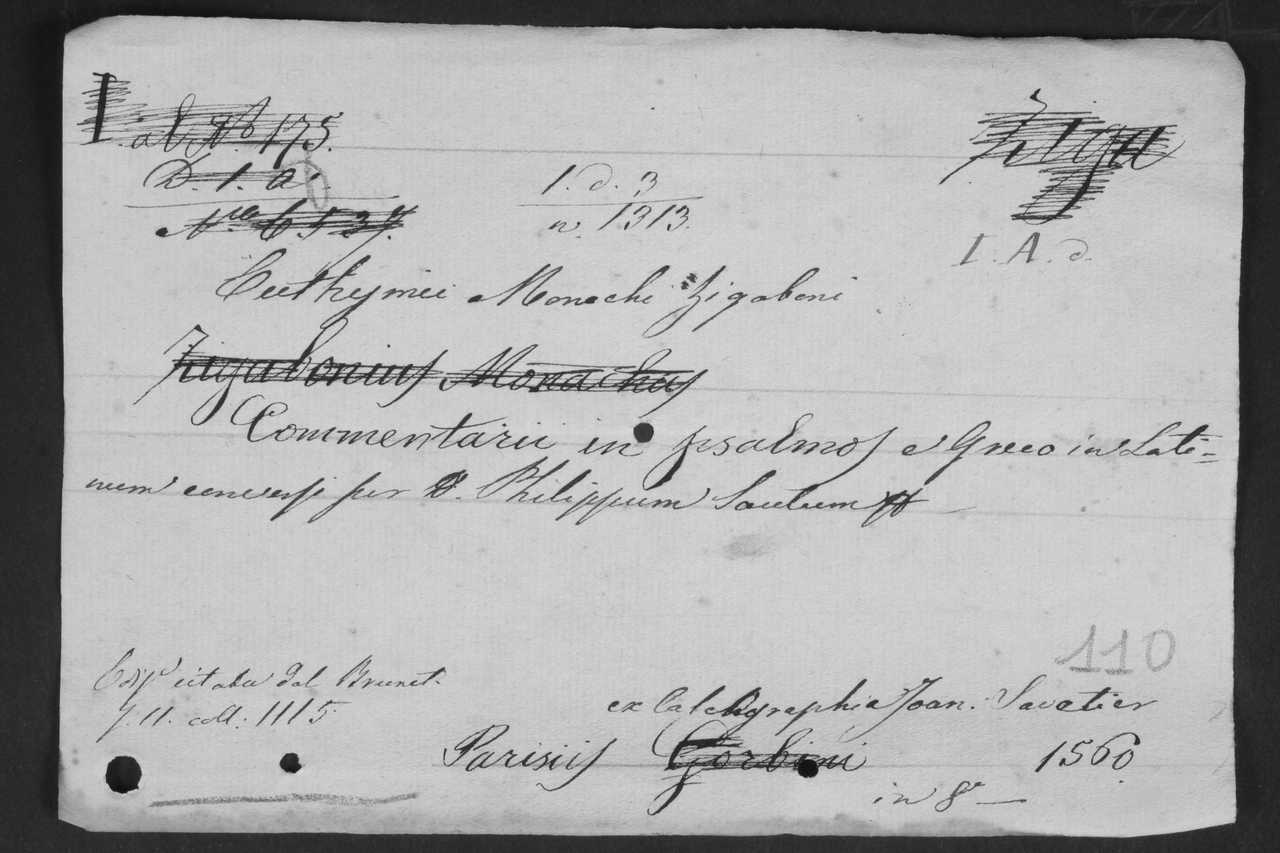 al N.º 175.
D. 1. a
N.º 6537.
1. d. 3
n. 1313.
Ziga
I. A. d.
Euthymii Monachi Zigaboni
Zugabonius Monachus
Commentarii in psalmos e Greco in Lati=
num conversi per D. Philippum Saulum
110
Ediz.e citata dal Brunet.
T. II. coll. 1115.
ex Calchographia Joan. Savatier
Parisiis Gorbini 1560
in 8.º